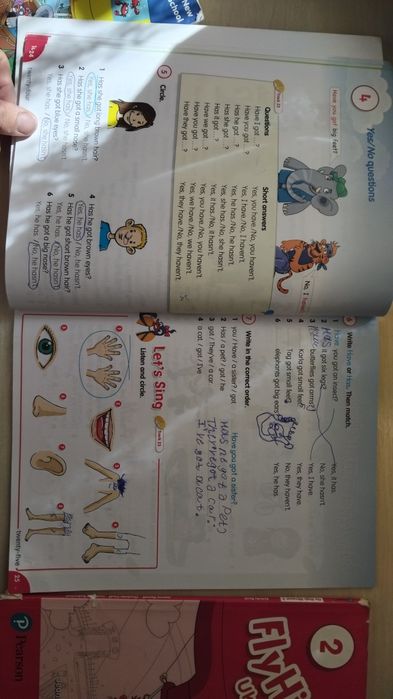 4
Yes/No questions
Have you got big feet?
No, I
Track 22
Questions
Short answers
Have I got ...?
Yes, you have./No, you haven't.
Have you got ...?
Yes, I have./No, I haven't.
Has he got ...?
Yes, he has./No, he hasn't.
Has she got ...?
Yes, she has./No, she hasn't.
Has it got ...?
Yes, it has./No, it hasn't.
Have we got ...?
Yes, you have./No, you haven't.
Have you got ...?
Yes, we have./No, we haven't.
Have they got ...?
Yes, they have./No, they haven't.
5 Circle.
1 Has she got long brown hair?
Yes, she has./No, she hasn't.
2 Has she got a small nose?
Yes, she has./No, she hasn't.
3 Has she got blue eyes?
Yes, she has./No, she hasn't.
4 Has he got brown eyes?
Yes, he has./No, he hasn't.
5 Has he got short brown hair?
Yes, he has./No, he hasn't.
6 Has he got a big nose?
Yes, he has./No, he hasn't.
24
twenty-four
Write Have or Has. Then match.
1 Have you got an insect?
2 Has it got six legs?
3 butterflies got arms?
4 Karla got small feet?
5 Tag got small feet?
6 elephants got big ears?
Yes, it has.
No, she hasn't.
Yes, I have.
Yes, they have.
No, they haven't.
Yes, he has.
7 Write in the correct order.
1 you / Have / a sister? / got
Have you got a sister?
2 Has / a pet? / got / he
Has he got a pet?
3 got / They've / a car.
They've got a car.
4 a cat / got / I've
I've got a cat.
Let's Sing
Track 23
Listen and circle.
twenty-five
25
2
Fly Hi
Pearson
New
school